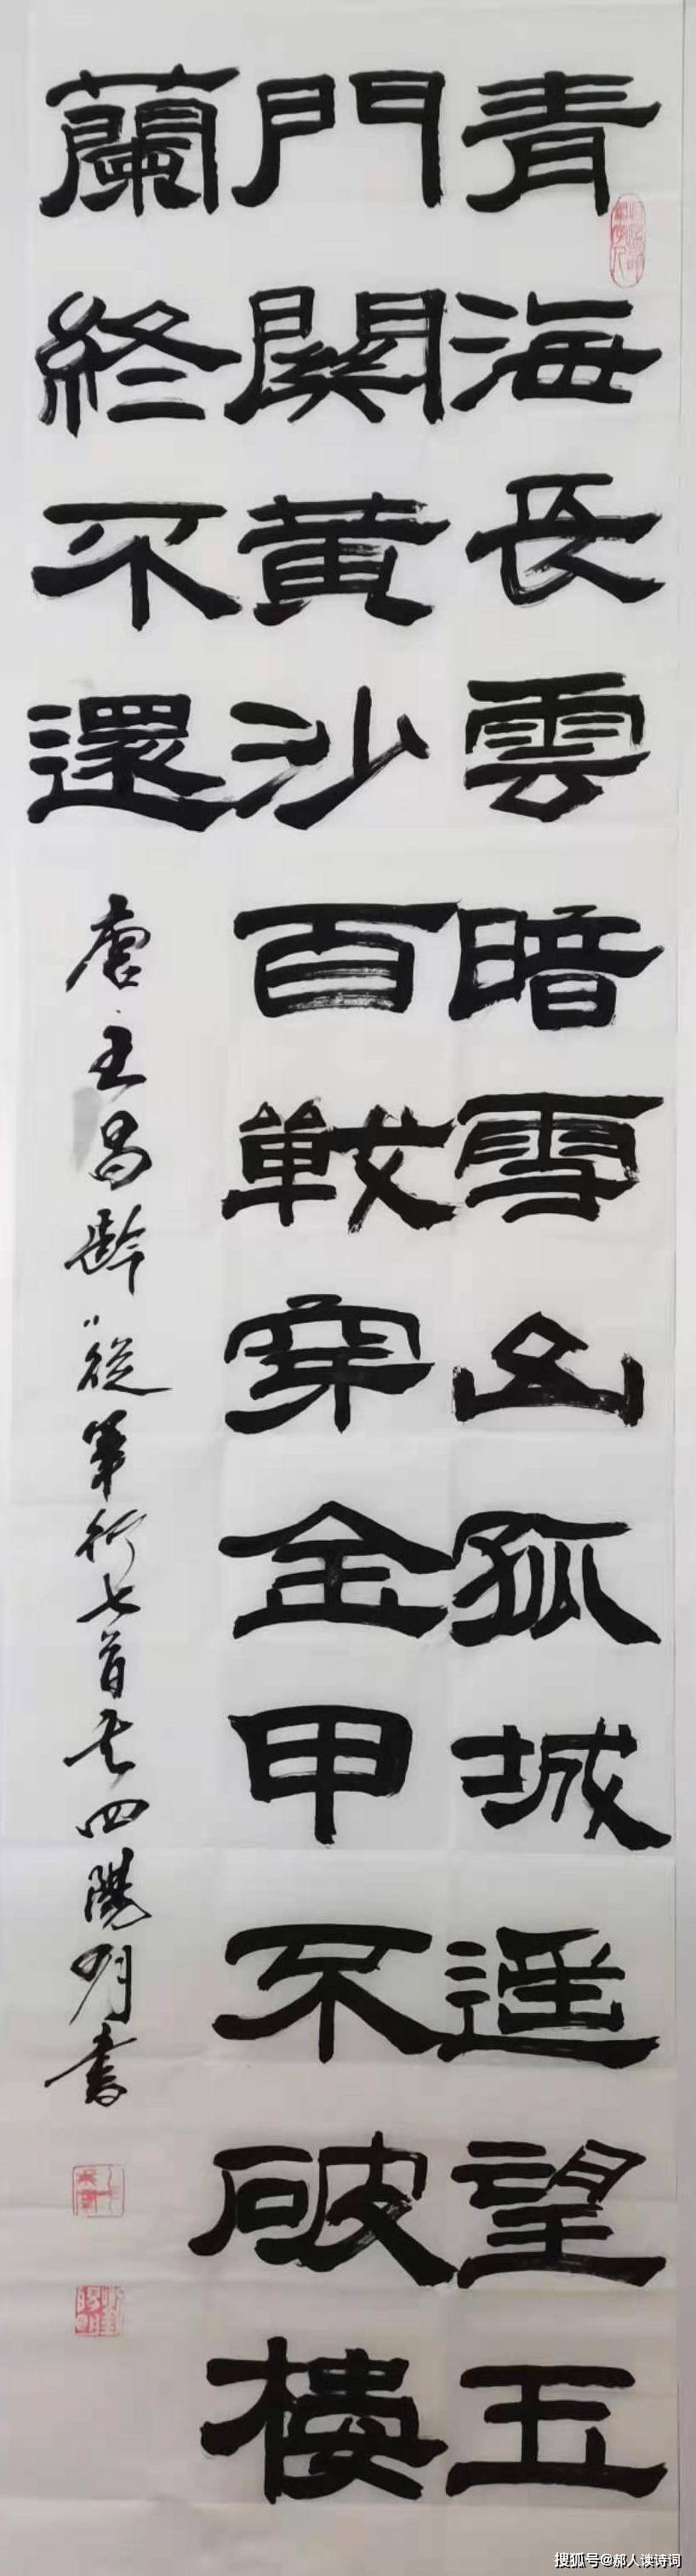 青海長雲暗雪山孤城遥望玉
門關黄沙百戰穿金甲不破樓
蘭終不還
唐王昌齡從軍行七首其四陽明書
搜狐号@郝人读诗词